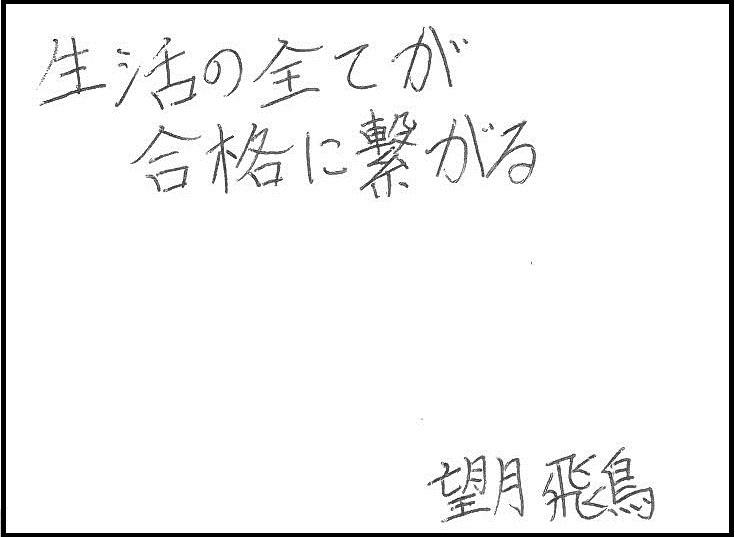 生活の全てが
合格に繋がる
望月飛鳥